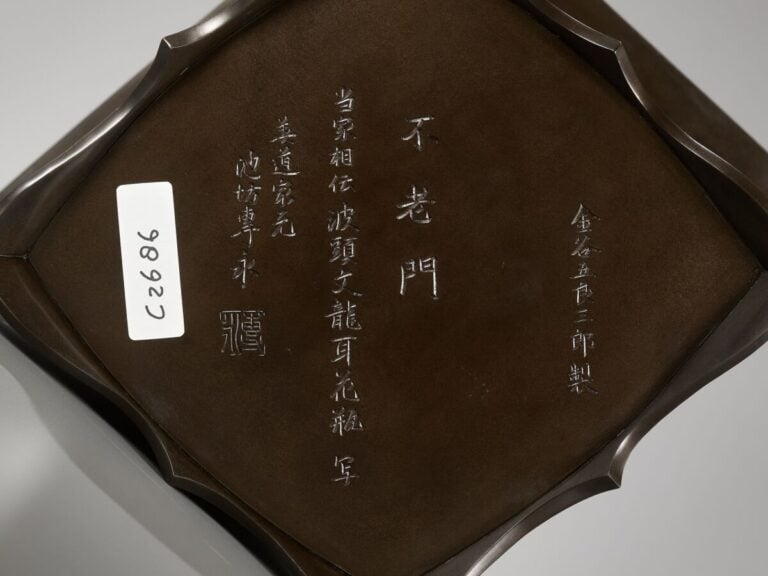 金谷五良三郎製
不老門
当家相伝波頭文龍耳花瓶 写
華道家元
池坊專永
C2686